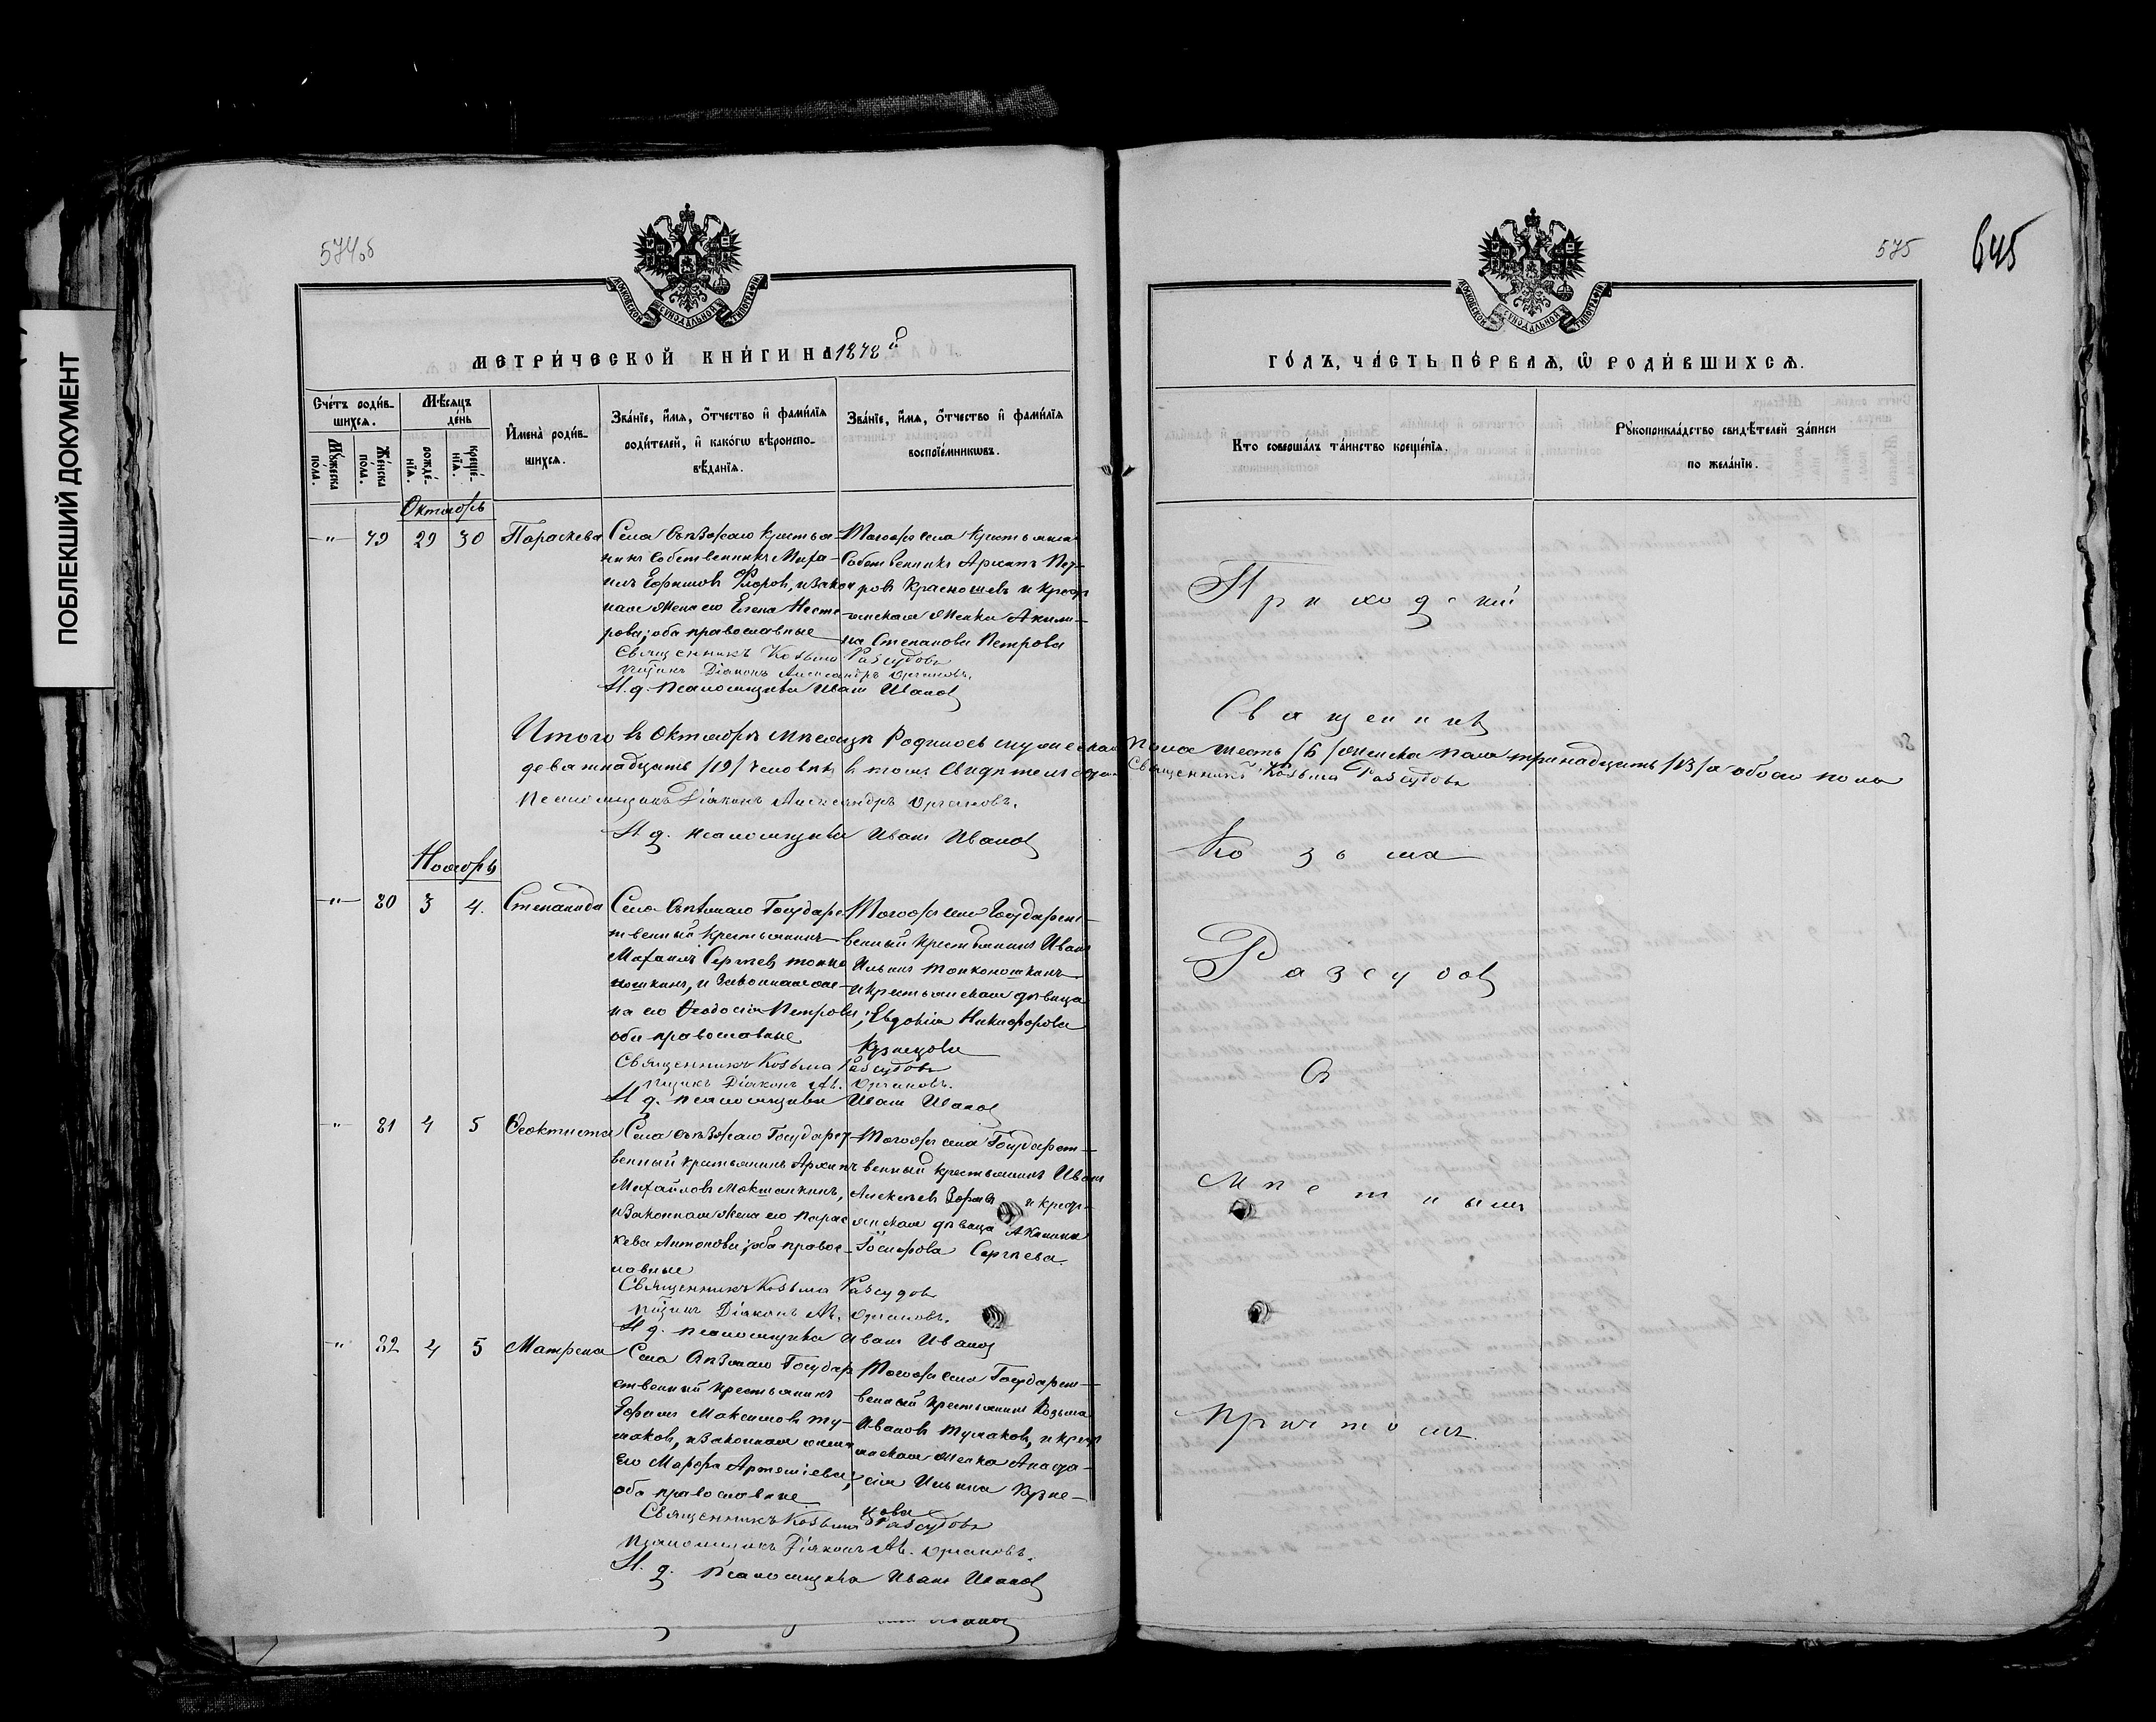 ПОБЛЕКШИЙ ДОКУМЕНТ
574об
575
645
МЕТРИ́ЧЕСКОЙ КНИ́ГИ НА 1878й
ГО́ДЪ, ЧА́СТЬ ПЕ́РВАѦ, Ѡ РОДИ́ВШИХСѦ.
Сче́тъ роди́в-
шихсѧ.
Мѣ́сяцъ
де́нь
Му́жеска по́ла.
Же́нска по́ла.
рожде́-нїѧ.
креще́-нїѧ.
И́мена роди́в-
шихсѧ.
Зва́нїе, и́мѧ, ѻ҆́тчество и҆ фами́лїѧ
роди́телей, и҆ како́гѡ вѣроиспо-
вѣ́данїѧ.
Зва́нїе, и́мѧ, ѻ҆́тчество и҆ фами́лїѧ
воспрїе́мникѡвъ.
Кто̀ соверша́лъ та́инство креще́нїѧ.
Рꙋкоприкла́дство свидѣ́телей за́писи
по жела́нїю.
Октябрь
-"- 79 29 30 Параскева
Села крестья-
нинъ Собственникъ Миха-
илъ Ефимовъ Фроловъ, и закон
ная жена его Елена Несте-
рова; оба православные
Тогоже села крестьянинъ
Собственникъ Архипъ Пет-
ровъ и крест
янская женка Акили-
на Степанова Петрова
Священникъ Козьма Разсудовъ
Діаконъ Александръ Органовъ.
И. д. псаломщика Иванъ Ивановъ
Итого въ Октябрѣ мѣсяцѣ родилось мужеска пола шесть /6/ женска пола тринадцать /13/ а обоего пола
девятнадцать /19/ человѣкъ въ томъ свидѣтельствуемъ Священникъ Козьма Разсудовъ
Псаломщикъ Діаконъ Александръ Органовъ.
И. д. псаломщика Иванъ Ивановъ
Ноябрь
-"- 80 3 4. Степанида
Села Государс-
твенный крестьянинъ
Михаилъ Сергѣевъ Тонко-
ношкинъ, и законная же-
на его Ѳеодосія Петрова
оба православные
Тогоже села Государст-
венный крестьянинъ Иванъ
Ильинъ Тонконошкинъ
и крестьянская дѣвица
Евдокія Никифорова
Кузнецова
Священникъ Козьма Разсудовъ
Діаконъ Ал. Органовъ.
И. д. псаломщика Иванъ Ивановъ
-"- 81 4 5 Ѳеоктиста
Села Государст-
венный крестьянинъ Архипъ
Михайловъ Мокшанкинъ,
и законная жена его Парас-
кева Антонова; оба правос-
лавные
Тогоже села Государст-
венный крестьянинъ Иванъ
Алексѣевъ и крест-
янская дѣвица Акилина
Сергѣева.
Священникъ Козьма Разсудовъ
Діаконъ Ал. Органовъ.
И. д. псаломщика Иванъ Ивановъ
-"- 82 4 5 Матрена
Села Государ
ственный крестьянинъ
Ефимъ Максимовъ Ту-
маковъ, и законная жена
его Марфа Артеміева;
оба православные
Тогоже села Государст-
венный крестьянинъ Козьма
Ивановъ Тумаковъ, и крест
янская женка Анаста-
сія Ильина Кузне-
цова
Священникъ Козьма Разсудовъ
Псаломщикъ Діаконъ Ал. Органовъ.
И. д. псаломщика Иванъ Ивановъ
Приходскій
Священникъ
Козьма
Разсудовъ
съ
мѣстнымъ
причтомъ.